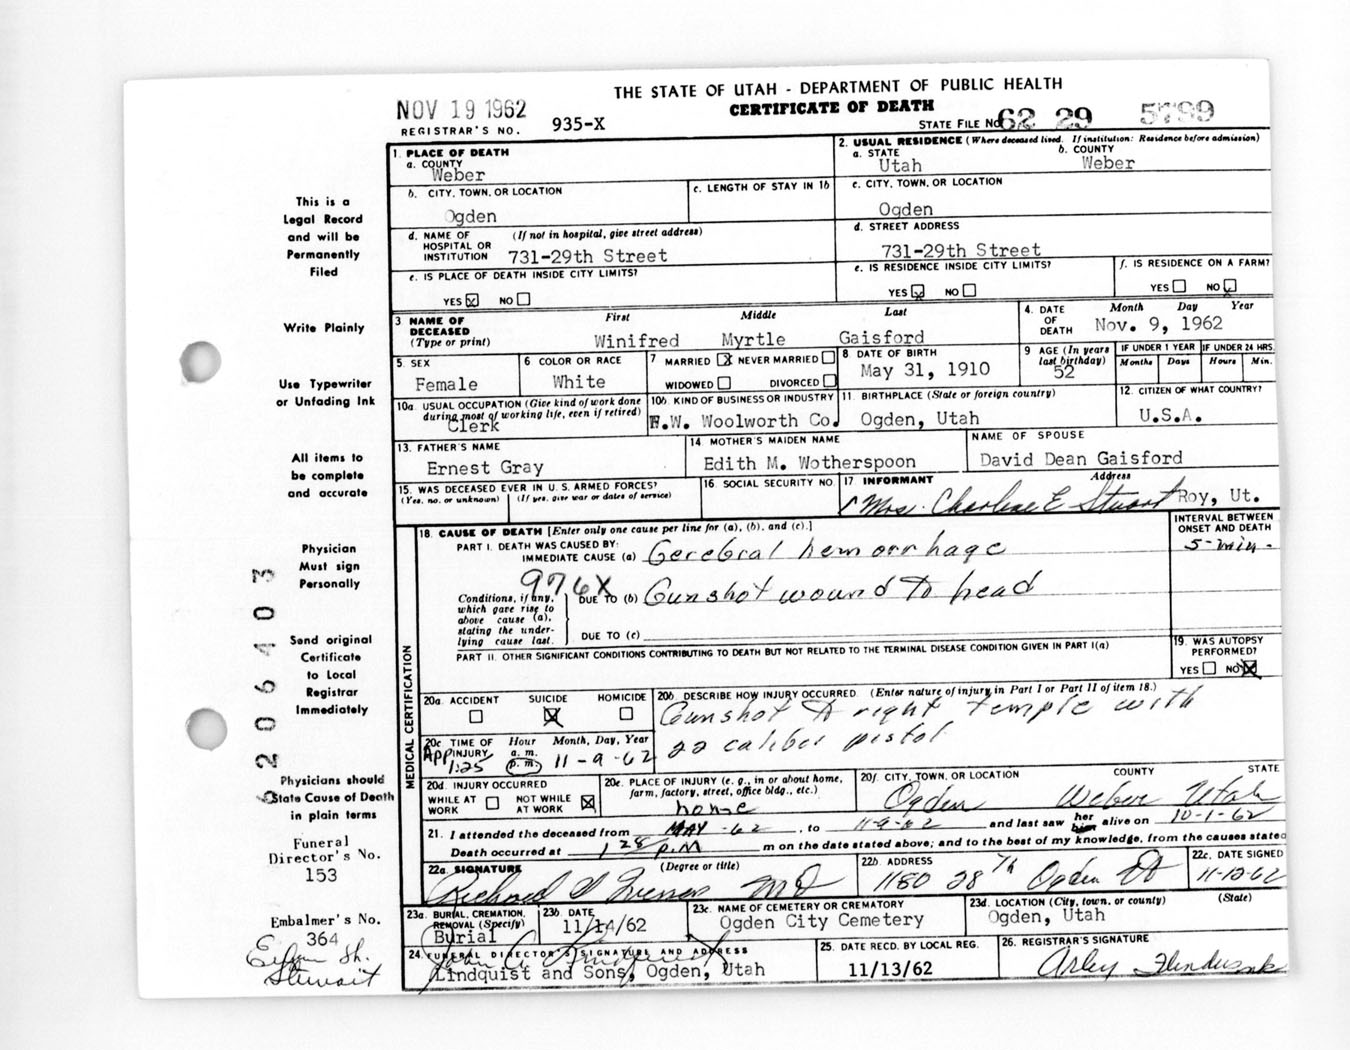 THE STATE OF UTAH - DEPARTMENT OF PUBLIC HEALTH
CERTIFICATE OF DEATH
NOV 19 1962
REGISTRAR'S NO. 935-X
STATE FILE NO. 62 29 5799
This is a
Legal Record
and will be
Permanently
Filed
Write Plainly
Use Typewriter
or Unfading Ink
All items to
be complete
and accurate
Physician
Must sign
Personally
Send original
Certificate
to Local
Registrar
Immediately
Physicians should
State Cause of Death
in plain terms
Funeral
Director's No.
153
Embalmer's No.
364
Stewart
1. PLACE OF DEATH
a. COUNTY
Weber
2. USUAL RESIDENCE (Where deceased lived. If institution: Residence before admission)
a. STATE b. COUNTY
Utah Weber
b. CITY, TOWN, OR LOCATION c. LENGTH OF STAY IN 1b
Ogden
c. CITY, TOWN, OR LOCATION
Ogden
d. NAME OF HOSPITAL OR INSTITUTION (If not in hospital, give street address)
731-29th Street
d. STREET ADDRESS
731-29th Street
e. IS PLACE OF DEATH INSIDE CITY LIMITS?
YES X NO
e. IS RESIDENCE INSIDE CITY LIMITS? f. IS RESIDENCE ON A FARM?
YES X NO YES NO X
3. NAME OF DECEASED (Type or print) First Middle Last
Winifred Myrtle Gaisford
4. DATE OF DEATH Month Day Year
Nov. 9, 1962
5. SEX
Female
6 COLOR OR RACE
White
7 MARRIED X NEVER MARRIED
WIDOWED DIVORCED
8. DATE OF BIRTH
May 31, 1910
9 AGE (In years last birthday)
52
IF UNDER 1 YEAR IF UNDER 24 HRS.
Months Days Hours Min.
10a. USUAL OCCUPATION (Give kind of work done during most of working life, even if retired)
Clerk
10b. KIND OF BUSINESS OR INDUSTRY
F.W. Woolworth Co.
11. BIRTHPLACE (State or foreign country)
Ogden, Utah
12. CITIZEN OF WHAT COUNTRY?
U.S.A.
13. FATHER'S NAME
Ernest Gray
14. MOTHER'S MAIDEN NAME
Edith M. Wotherspoon
NAME OF SPOUSE
David Dean Gaisford
15. WAS DECEASED EVER IN U.S. ARMED FORCES?
(Yes, no, or unknown) (If yes, give war or dates of service)
16. SOCIAL SECURITY NO.
17. INFORMANT Address
Mrs. Charlene E. Stuart Roy, Ut.
MEDICAL CERTIFICATION
18. CAUSE OF DEATH [Enter only one cause per line for (a), (b), and (c).]
INTERVAL BETWEEN ONSET AND DEATH
PART I. DEATH WAS CAUSED BY:
IMMEDIATE CAUSE (a) Cerebral hemorrhage 5-min.
976X
Conditions, if any, which gave rise to above cause (a), stating the underlying cause last.
DUE TO (b) Gunshot wound to head
DUE TO (c)
PART II. OTHER SIGNIFICANT CONDITIONS CONTRIBUTING TO DEATH BUT NOT RELATED TO THE TERMINAL DISEASE CONDITION GIVEN IN PART I(a)
19. WAS AUTOPSY PERFORMED?
YES NO X
20a. ACCIDENT SUICIDE HOMICIDE
X
20b. DESCRIBE HOW INJURY OCCURRED. (Enter nature of injury in Part I or Part II of item 18.)
Gunshot to right temple with
22 caliber pistol
20c TIME OF INJURY Hour Month, Day, Year
App 1:25 a.m. p.m. 11-9-62
20d. INJURY OCCURRED
WHILE AT WORK NOT WHILE AT WORK X
20e. PLACE OF INJURY (e. g., in or about home, farm, factory, street, office bldg., etc.)
home
20f. CITY, TOWN, OR LOCATION COUNTY STATE
Ogden Weber Utah
21. I attended the deceased from MAY -62, to 11-9-62 and last saw her him alive on 10-1-62
Death occurred at 1 28 p.m m on the date stated above; and to the best of my knowledge, from the causes stated
22a. SIGNATURE (Degree or title)
Richard MD
22b. ADDRESS
1180 28th Ogden Ut
22c. DATE SIGNED
11-12-62
23a. BURIAL, CREMATION, REMOVAL (Specify)
Burial
23b. DATE
11/14/62
23c. NAME OF CEMETERY OR CREMATORY
Ogden City Cemetery
23d. LOCATION (City, town, or county) (State)
Ogden, Utah
24. FUNERAL DIRECTOR'S SIGNATURE AND ADDRESS
Lindquist and Sons, Ogden, Utah
25. DATE RECD. BY LOCAL REG.
11/13/62
26. REGISTRAR'S SIGNATURE